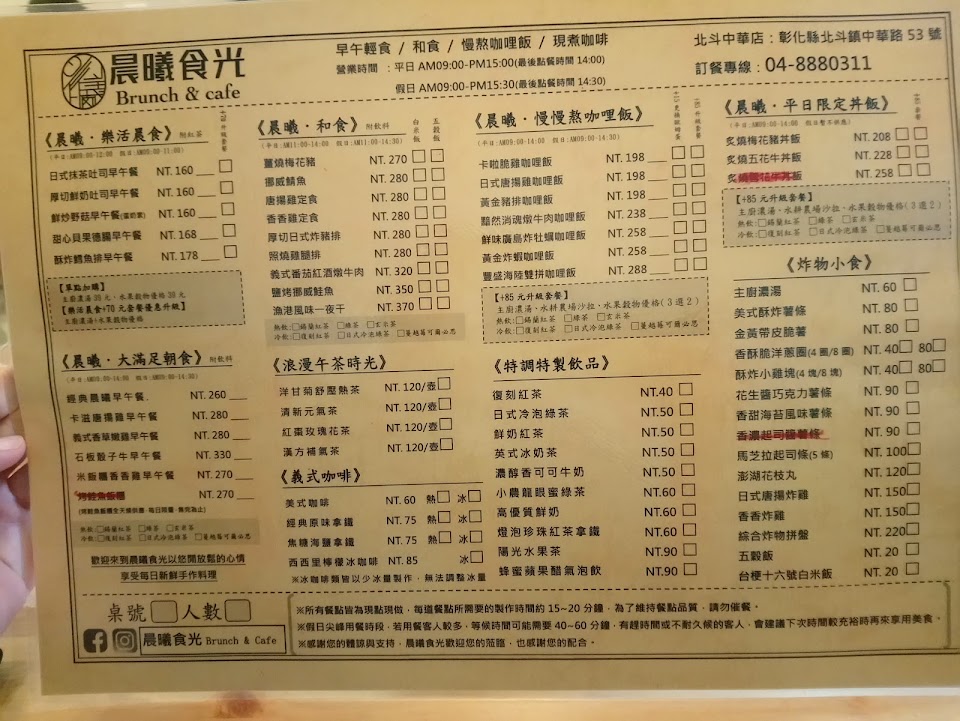 晨曦食光
Brunch & cafe
早午輕食 / 和食 / 慢熬咖哩飯 / 現煮咖啡
營業時間 : 平日 AM09:00-PM15:00(最後點餐時間 14:00)
假日 AM09:00-PM15:30(最後點餐時間 14:30)
北斗中華店 : 彰化縣北斗鎮中華路 53 號
訂餐專線 : 04-8880311
《晨曦・樂活晨食》附紅茶
(平日:AM09:00-12:00 假日:AM09:00-11:00)
日式抹茶吐司早午餐 NT. 160
厚切鮮奶吐司早午餐 NT. 160
鮮炒野菇早午餐(蛋奶素) NT. 160
甜心貝果德腸早午餐 NT.168
酥炸鱈魚排早午餐 NT. 178
【單點加購】
主廚濃湯30元,水果穀物優格30元
【樂活晨食+70元套餐優惠升級】
主廚濃湯+水果穀物優格
《晨曦・大滿足朝食》附飲料
(平日:AM09:00-14:00 假日:AM09:00-14:30)
經典晨曦早午餐. NT. 260
卡滋唐揚雞早午餐 NT. 280
義式香草嫩雞早午餐 NT. 280
石板骰子牛早午餐 NT. 330
米飯糰香香雞早午餐 NT. 270
烤鮭魚飯糰 NT. 270
熱飲:□錫蘭紅茶 □綠茶 □玄米茶
冷飲:□復刻紅茶 □日式冷泡綠茶 □蔓越莓可爾必思
歡迎來到晨曦食光以悠閒放鬆的心情
享受每日新鮮手作料理
《晨曦・和食》附飲料
白米飯
五穀飯
(平日:AM11:00-14:00 假日:AM11:00-14:30)
薑燒梅花豬 NT. 270
挪威鯖魚 NT. 280
唐揚雞定食 NT. 280
香香雞定食 NT. 280
厚切日式炸豬排 NT. 280
照燒雞腿排 NT. 280
義式番茄紅酒燉牛肉 NT. 320
鹽烤挪威鮭魚 NT. 350
漁港風味一夜干 NT. 370
熱飲:□錫蘭紅茶 □綠茶 □玄米茶
冷飲:□復刻紅茶 □日式冷泡綠茶 □蔓越莓可爾必思
《浪漫午茶時光》
洋甘菊舒壓熱茶 NT. 120/壺
清新元氣茶 NT. 120/壺
紅棗玫瑰花茶 NT. 120/壺
漢方補氣茶 NT. 120/壺
《義式咖啡》
美式咖啡 NT. 60 熱 冰
經典原味拿鐵 NT. 75 熱 冰
焦糖海鹽拿鐵 NT. 75 熱 冰
西西里檸檬冰咖啡 NT. 85 冰
※冰咖啡類皆以少冰量製作,無法調整冰量
《晨曦・慢慢熬咖哩飯》
(平日:AM09:00-14:00 假日:AM09:00-14:30)
卡啦脆雞咖哩飯 NT. 198
日式唐揚雞咖哩飯 NT. 198
黃金豬排咖哩飯 NT. 198
黯然消魂燉牛肉咖哩飯 NT. 238
鮮味廣島炸牡蠣咖哩飯 NT. 258
黃金炸蝦咖哩飯 NT. 258
豐盛海陸雙拼咖哩飯 NT. 288
【+85 元升級套餐】
主廚濃湯、水耕農場沙拉、水果穀物優格(3選2)
熱飲:□錫蘭紅茶 □綠茶 □玄米茶
冷飲:□復刻紅茶 □日式冷泡綠茶 □蔓越莓可爾必思
《特調特製飲品》
復刻紅茶 NT.40
日式冷泡綠茶 NT.50
鮮奶紅茶 NT.50
英式冰奶茶 NT.50
濃醇香可可牛奶 NT.50
小農龍眼蜜綠茶 NT.60
高優質鮮奶 NT.60
燈泡珍珠紅茶拿鐵 NT.60
陽光水果茶 NT.90
蜂蜜蘋果醋氣泡飲 NT.90
《晨曦・平日限定丼飯》
(平日:AM09:00-14:00 假日暫不供應)
炙燒梅花豬丼飯 NT. 208
炙燒五花牛丼飯 NT. 228
炙燒雪花牛丼飯 NT. 258
【+85 元升級套餐】
主廚濃湯、水耕農場沙拉、水果穀物優格(3選2)
熱飲:□錫蘭紅茶 □綠茶 □玄米茶
冷飲:□復刻紅茶 □日式冷泡綠茶 □蔓越莓可爾必思
《炸物小食》
主廚濃湯 NT. 60
美式酥炸薯條 NT. 80
金黃帶皮脆薯 NT. 80
香酥脆洋蔥圈(4 圈/8 圈) NT. 40 80
酥炸小雞塊(4 塊/8 塊) NT. 40 80
花生醬巧克力薯條 NT. 90
香甜海苔風味薯條 NT. 90
香濃起司醬薯條 NT. 90
馬芝拉起司條(5 條) NT. 100
澎湖花枝丸 NT. 120
日式唐揚炸雞 NT. 150
香香炸雞 NT. 150
綜合炸物拼盤 NT. 220
五穀飯 NT. 20
台梗十六號白米飯 NT. 20
桌號 人數
晨曦食光 Brunch & Cafe
※所有餐點皆為現點現做,每道餐點所需要的製作時間約 15~20 分鐘,為了維持餐點品質,請勿催餐。
※假日尖峰用餐時段,若用餐客人較多,等候時間可能需要 40~60 分鐘,有趕時間或不耐久候的客人,會建議下次時間較充裕時再來享用美食。
※感謝您的體諒與支持,晨曦食光歡迎您的蒞臨,也感謝您的配合。